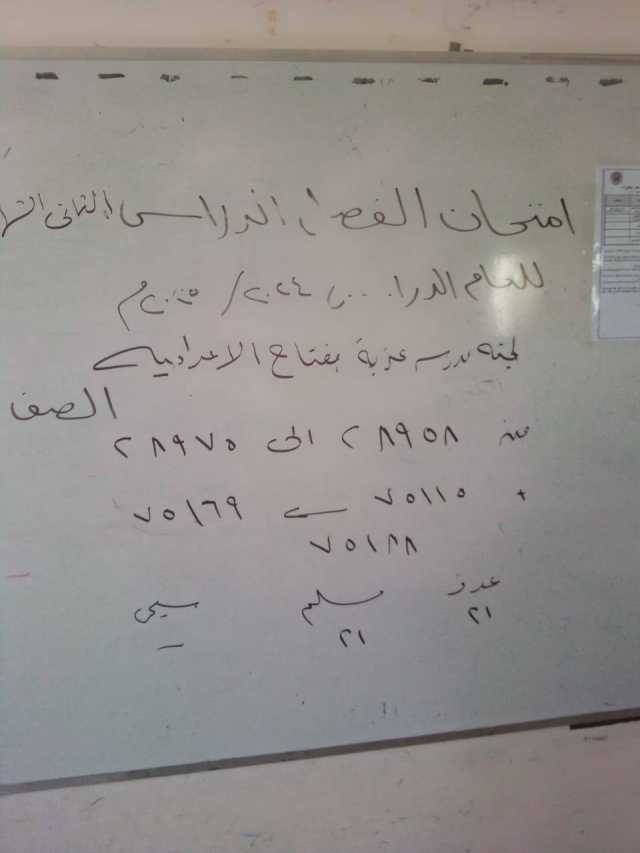 امتحان الفصل الدراسى الثانى
للعام الدرا ٢٠٢٤/٢٠٢٥م
لجنة مدرسة عزبة مفتاح الاعدادية
الصف
من ٢٨٩٥٨ الى ٢٨٩٧٥
+ ٧٥١١٥ ــ ٧٥١٦٩
٧٥١٨٨
عدد مسلم مسيحى
٢١ ٢١ ــ